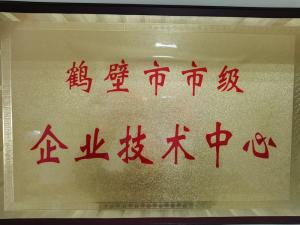 鹤壁市市级
企业技术中心